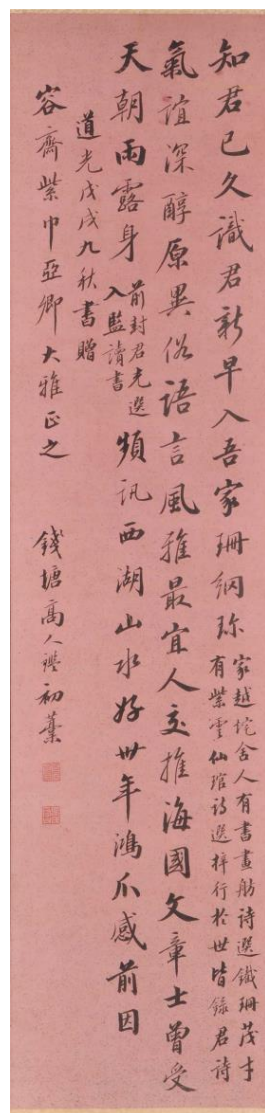 知君已久識君新早入吾家珊網珎
家越垞舍人有書畫舫詩選鐵珊茂才
有紫雲仙館詩選梓行於世皆錄君詩
氣誼深醇原異俗語言風雅最宜人交推海國文章士曾受
天朝雨露身
前封君充選
入監讀書
頻訊西湖山水好卅年鴻爪感前因
道光戊戌九秋書贈
容齋紫巾亞卿大雅正之
錢塘高人鑑初藁